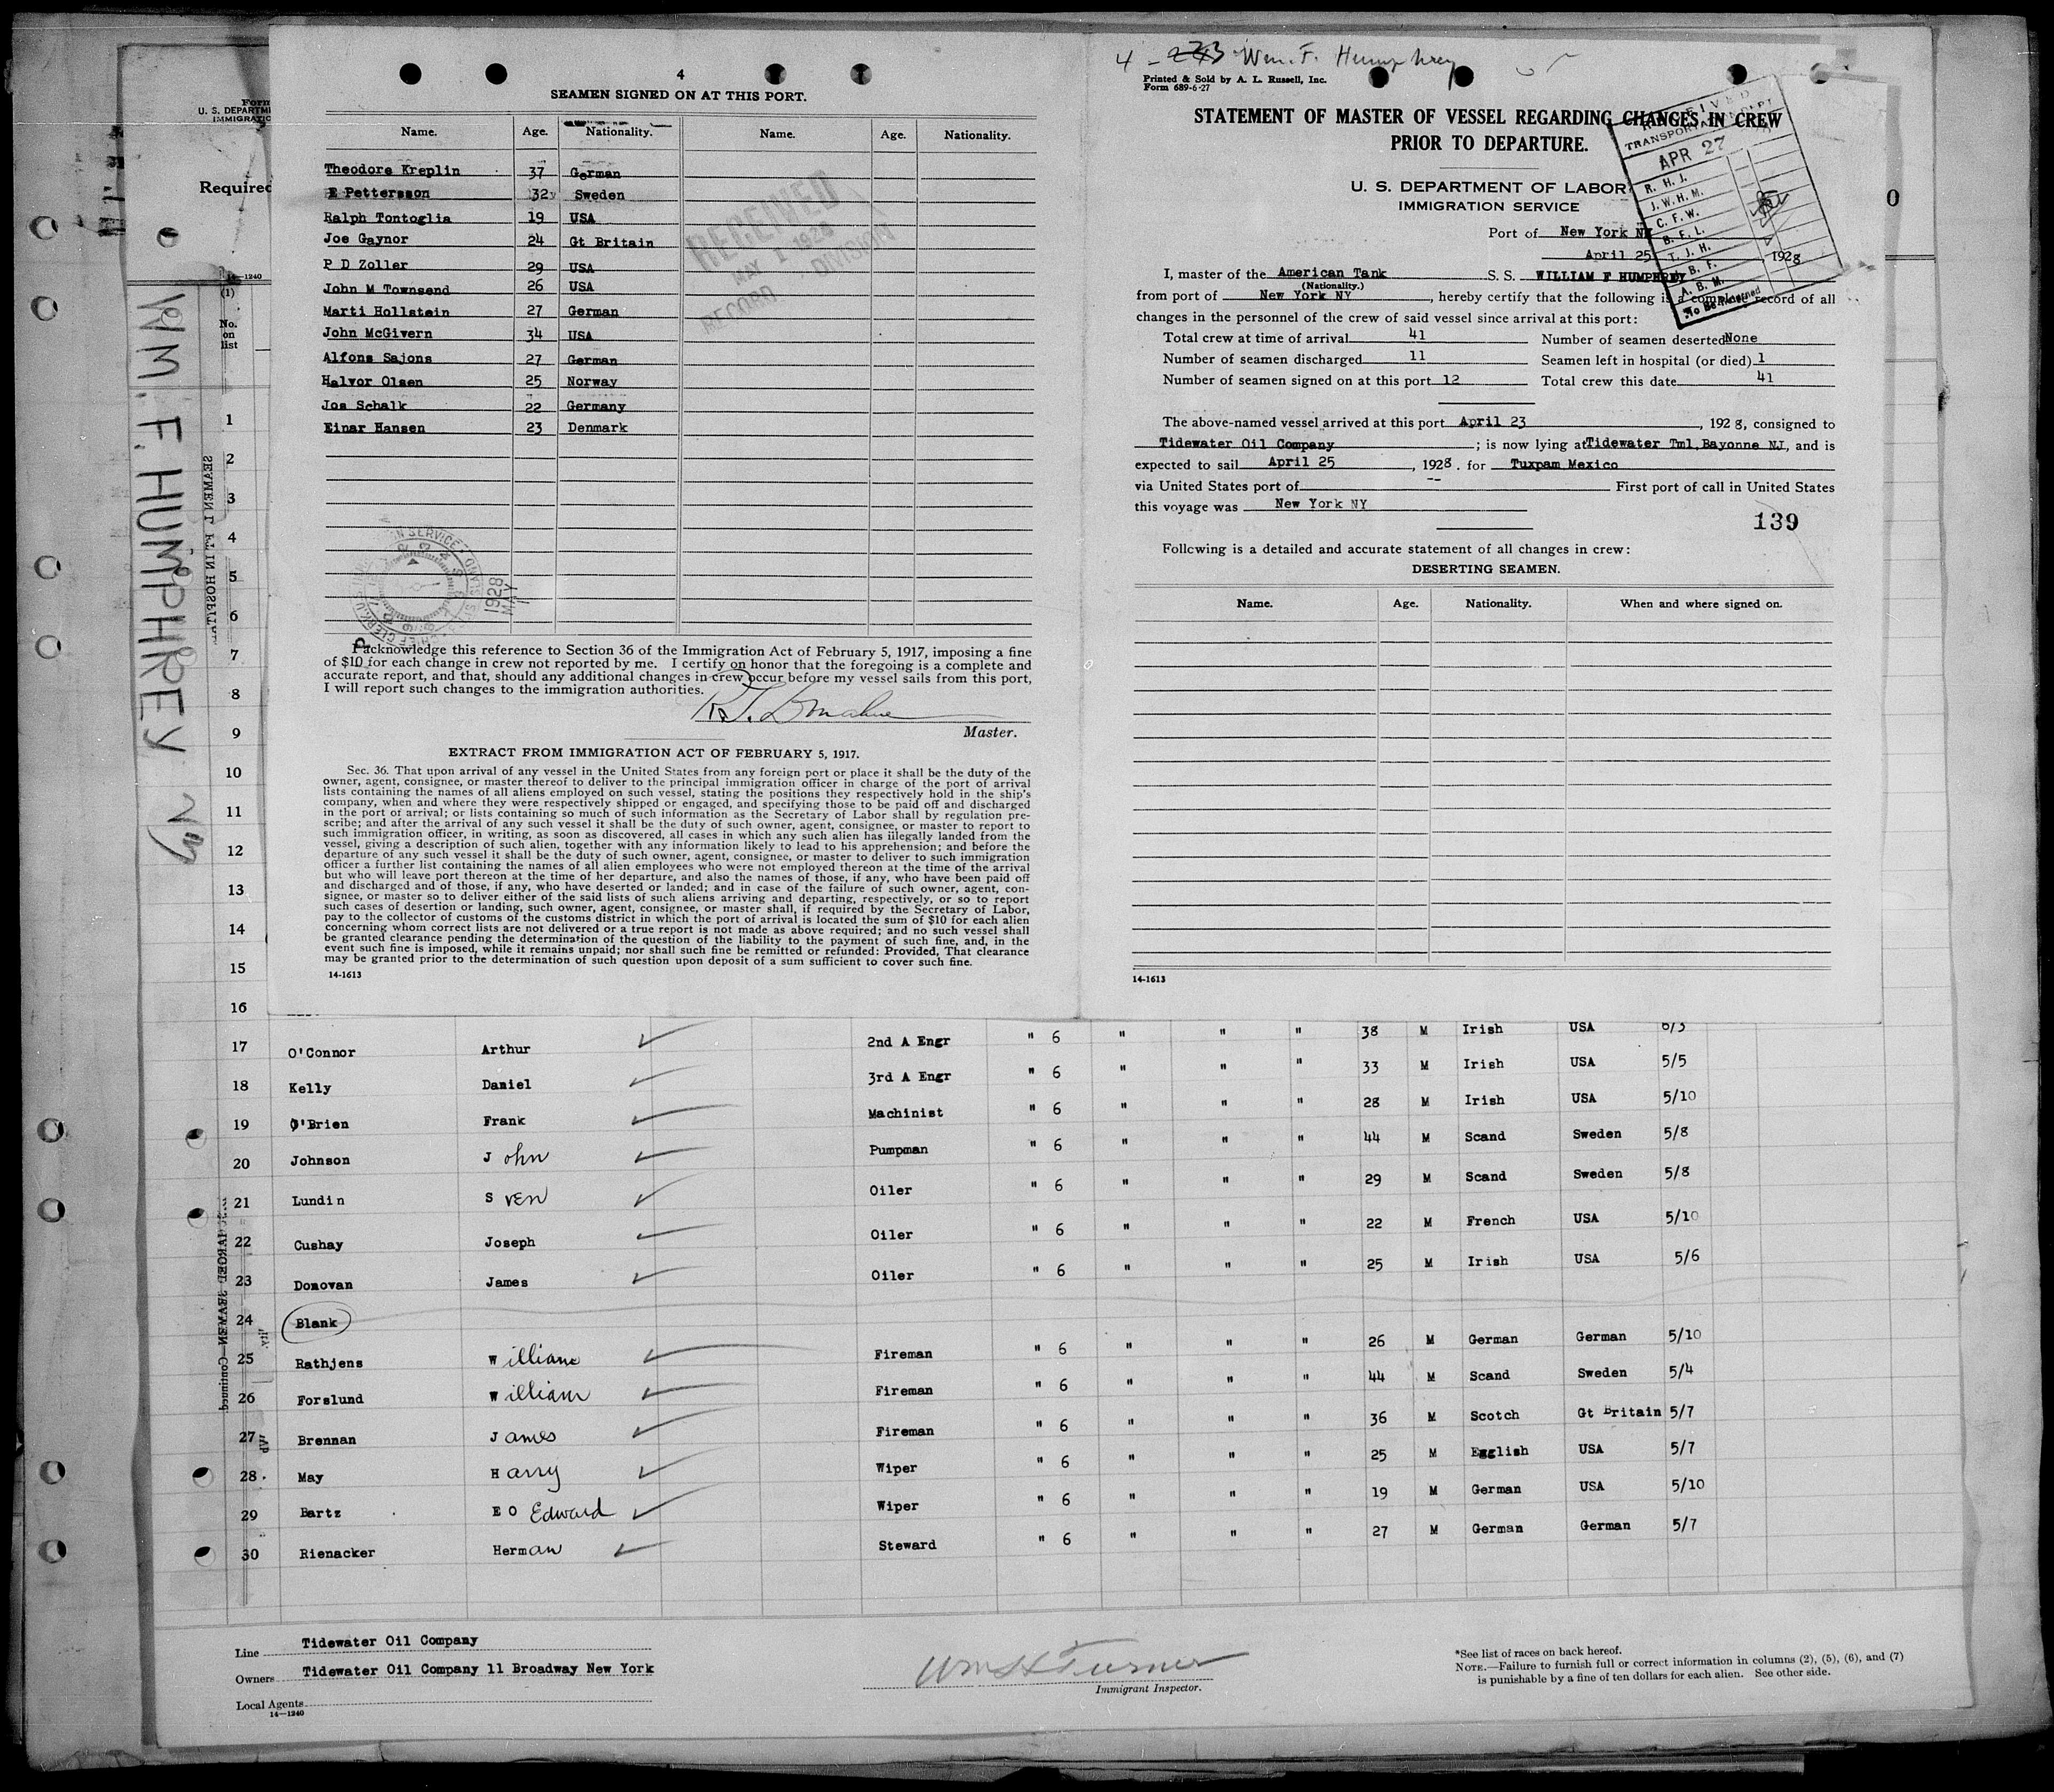 4
SEAMEN SIGNED ON AT THIS PORT.
Name. Age. Nationality. Name. Age. Nationality.
Theodore Kreplin 37 German
E Pettersson 32 Sweden
Ralph Tontoglia 19 USA
Joe Gaynor 24 Gt Britain
P D Zoller 29 USA
John M Townsend 26 USA
Marti Hollstein 27 German
John McGivern 34 USA
Alfons Sajons 27 German
Halvor Olsen 25 Norway
Jos Schalk 22 Germany
Einar Hansen 23 Denmark
RECEIVED
MAY 1 1928
RECORD DIVISION
1928
MAY
I acknowledge this reference to Section 36 of the Immigration Act of February 5, 1917, imposing a fine
of $10 for each change in crew not reported by me. I certify on honor that the foregoing is a complete and
accurate report, and that, should any additional changes in crew occur before my vessel sails from this port,
I will report such changes to the immigration authorities.
Master.
EXTRACT FROM IMMIGRATION ACT OF FEBRUARY 5, 1917.
Sec. 36. That upon arrival of any vessel in the United States from any foreign port or place it shall be the duty of the
owner, agent, consignee, or master thereof to deliver to the principal immigration officer in charge of the port of arrival
lists containing the names of all aliens employed on such vessel, stating the positions they respectively hold in the ship's
company, when and where they were respectively shipped or engaged, and specifying those to be paid off and discharged
in the port of arrival; or lists containing so much of such information as the Secretary of Labor shall by regulation pre-
scribe; and after the arrival of any such vessel it shall be the duty of such owner, agent, consignee, or master to report to
such immigration officer, in writing, as soon as discovered, all cases in which any such alien has illegally landed from the
vessel, giving a description of such alien, together with any information likely to lead to his apprehension; and before the
departure of any such vessel it shall be the duty of such owner, agent, consignee, or master to deliver to such immigration
officer a further list containing the names of all alien employees who were not employed thereon at the time of the arrival
but who will leave port thereon at the time of her departure, and also the names of those, if any, who have been paid off
and discharged and of those, if any, who have deserted or landed; and in case of the failure of such owner, agent, con-
signee, or master so to deliver either of the said lists of such aliens arriving and departing, respectively, or so to report
such cases of desertion or landing, such owner, agent, consignee, or master shall, if required by the Secretary of Labor,
pay to the collector of customs of the customs district in which the port of arrival is located the sum of $10 for each alien
concerning whom correct lists are not delivered or a true report is not made as above required; and no such vessel shall
be granted clearance pending the determination of the question of the liability to the payment of such fine, and, in the
event such fine is imposed, while it remains unpaid; nor shall such fine be remitted or refunded: Provided, That clearance
may be granted prior to the determination of such question upon deposit of a sum sufficient to cover such fine.
14-1613
4 - Wm. F. Humphrey
Printed & Sold by A. L. Russell, Inc.
Form 689-6-27
STATEMENT OF MASTER OF VESSEL REGARDING CHANGES IN CREW
PRIOR TO DEPARTURE.
U. S. DEPARTMENT OF LABOR
IMMIGRATION SERVICE
RECEIVED
APR 27
R. H. J.
J. W. H. M.
C. F. W.
B. F. L.
T. J. H.
A. B. M.
To Be Returned
Port of New York NY
April 25 1928
I, master of the American Tank S. S. WILLIAM F HUMPHREY
(Nationality.)
from port of New York NY, hereby certify that the following is a complete record of all
changes in the personnel of the crew of said vessel since arrival at this port:
Total crew at time of arrival 41 Number of seamen deserted None
Number of seamen discharged 11 Seamen left in hospital (or died) 1
Number of seamen signed on at this port 12 Total crew this date 41
The above-named vessel arrived at this port April 23, 1928, consigned to
Tidewater Oil Company; is now lying at Tidewater Tml, Bayonne NJ, and is
expected to sail April 25, 1928. for Tuxpam Mexico
via United States port of -- First port of call in United States
this voyage was New York NY
139
Following is a detailed and accurate statement of all changes in crew:
DESERTING SEAMEN.
Name. Age. Nationality. When and where signed on.
14-1613
Form
U. S. DEPARTM
IMMIGRATIO
Required
14-1240
(1)
No.
on
list
WM. F. HUMPHREY
1
2
3
4
5
6
7
8
9
10
11
12
13
14
15
16
17 O'Connor Arthur 2nd A Engr " 6 " " " 38 M Irish USA 6/3
18 Kelly Daniel 3rd A Engr " 6 " " " 33 M Irish USA 5/5
19 O'Brien Frank Machinist " 6 " " " 28 M Irish USA 5/10
20 Johnson John Pumpman " 6 " " " 44 M Scand Sweden 5/8
21 Lundin Sven Oiler " 6 " " " 29 M Scand Sweden 5/8
22 Cushay Joseph Oiler " 6 " " " 22 M French USA 5/10
23 Donovan James Oiler " 6 " " " 25 M Irish USA 5/6
24 Blank
25 Rathjens William Fireman " 6 " " " 26 M German German 5/10
26 Forslund William Fireman " 6 " " " 44 M Scand Sweden 5/4
27 Brennan James Fireman " 6 " " " 36 M Scotch Gt Britain 5/7
28 May Harry Wiper " 6 " " " 25 M English USA 5/7
29 Bartz E O Edward Wiper " 6 " " " 19 M German USA 5/10
30 Rienacker Herman Steward " 6 " " " 27 M German German 5/7
Line Tidewater Oil Company
Owners Tidewater Oil Company 11 Broadway New York
Local Agents
14-1240
Wm H Turner
Immigrant Inspector.
*See list of races on back hereof.
NOTE.—Failure to furnish full or correct information in columns (2), (5), (6), and (7)
is punishable by a fine of ten dollars for each alien. See other side.